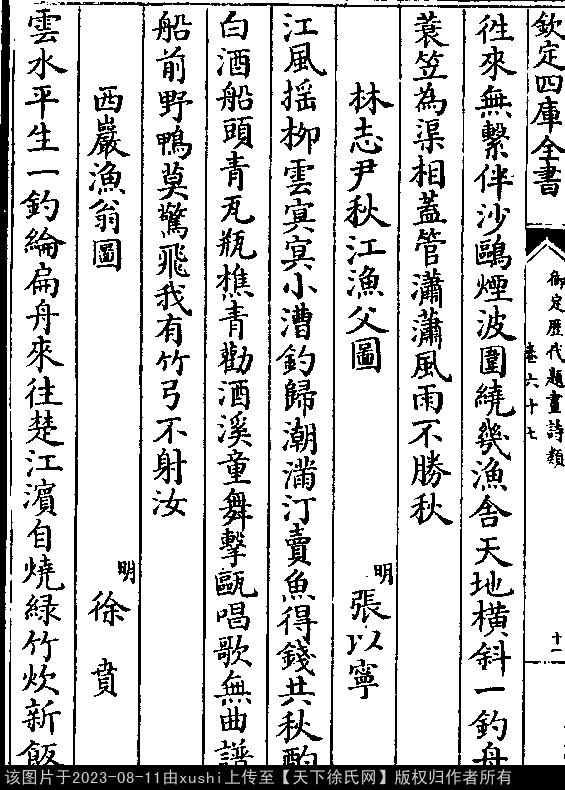 欽定四庫全書
御定歷代題畫詩類
卷六十七
十一
徃來無繫伴沙鷗煙波圍繞幾漁舎天地橫斜一釣舟
蓑笠為渠相蓋管瀟瀟風雨不勝秋
林志尹秋江漁父圖
明
張以寧
江風揺栁雲㝠㝠小漕釣歸潮滿汀賣魚得錢共秋酌
白酒船頭青瓦瓶樵青勸酒溪童舞擊甌唱歌無曲譜
船前野鴨莫驚飛我有竹弓不射汝
西巖漁翁圖
明
徐賁
雲水平生一釣綸扁舟來往楚江濱自燒綠竹炊新飯
该图片于2023-08-11由xushi上传至【天下徐氏网】版权归作者所有